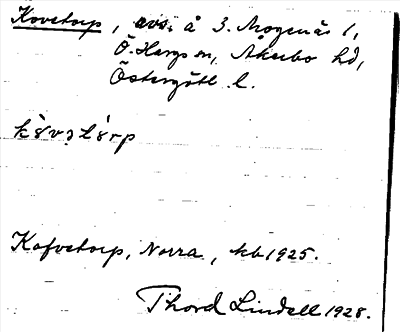 Kovetorp, avs. å 3. Mogenäs 1,
Ö. Hargs sn, Åkerbo hd,
Östergötl l.
Kofvetorp, Norra, kb 1925.
Thord Lindell 1928.